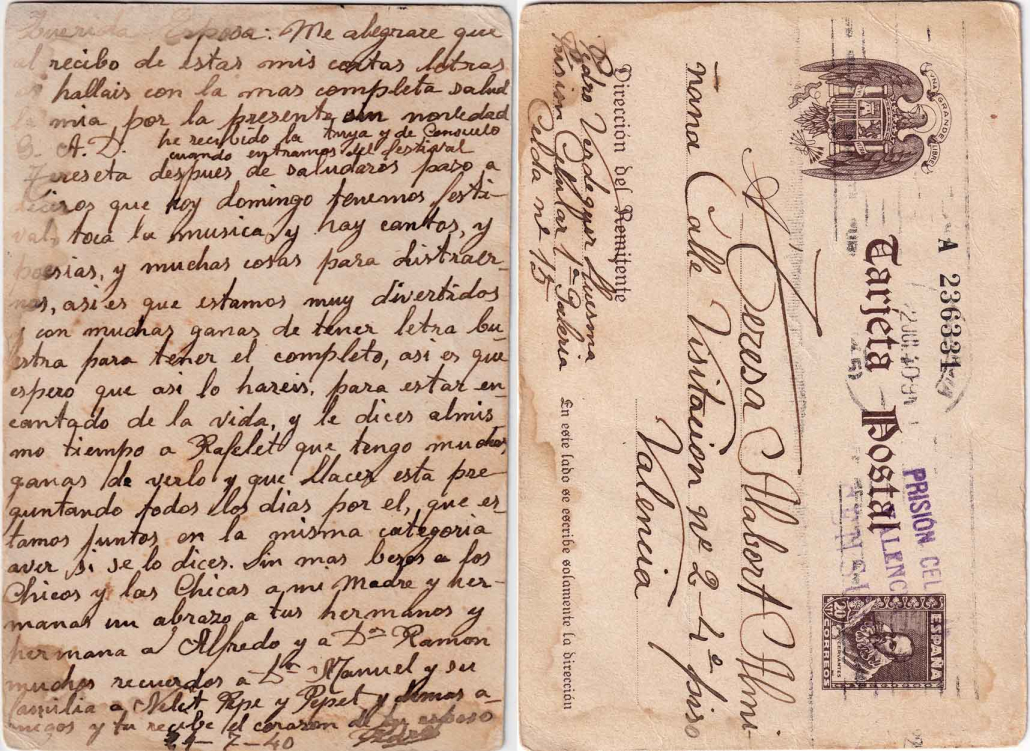 Querida Esposa: Me alegrare que
al recibo de estas mis cortas letras
os hallais con la mas completa salud
la mia por la presente sin novedad
G. A. D. he recibido la tuya y de Consuelo
cuando entramos del festival
Tereseta despues de saludaros paso a
diciros que hoy domingo tenemos festi-
val, toca la musica, y hay cantos, y
poesias, y muchas cosas para distraer-
nos, asi es que estamos muy divertidos
y con muchas ganas de tener letra bu-
estra para tener el completo, asi es que
espero que asi lo hareis, para estar en
cantado de la vida, y le dices al mis
mo tiempo a Rafelet que tengo muchas
ganas de verlo y que Llacer esta pre
guntando todos los dias por el, que es
tamos juntos en la misma categoria
aver si se lo dices. Sin mas besos a los
Chicos y las Chicas a mi Madre y her-
manas un abrazo a tus hermanos y
hermana a Alfredo y a Dn Ramon
muchos recuerdos a Dn Manuel y su
familia a Nelet Pepe y Pepet y demas a-
migos y tu recibe el corazon de tu esposo
21-7-40 Pedro
UNA GRANDE LIBRE
A 236331
Tarjeta Postal
PRISIÓN CEL
VALENC
ESPAÑA
CERVANTES
20 CTS
CORREO
A Teresa Alabort Almi-
ñana Calle Visitacion nº 2-4º piso
Valencia
Dirección del Remitente
Pedro Verdeguer Juesma
Prision Celular 1ª Galeria
Celda nº 15
En este lado se escribe solamente la dirección